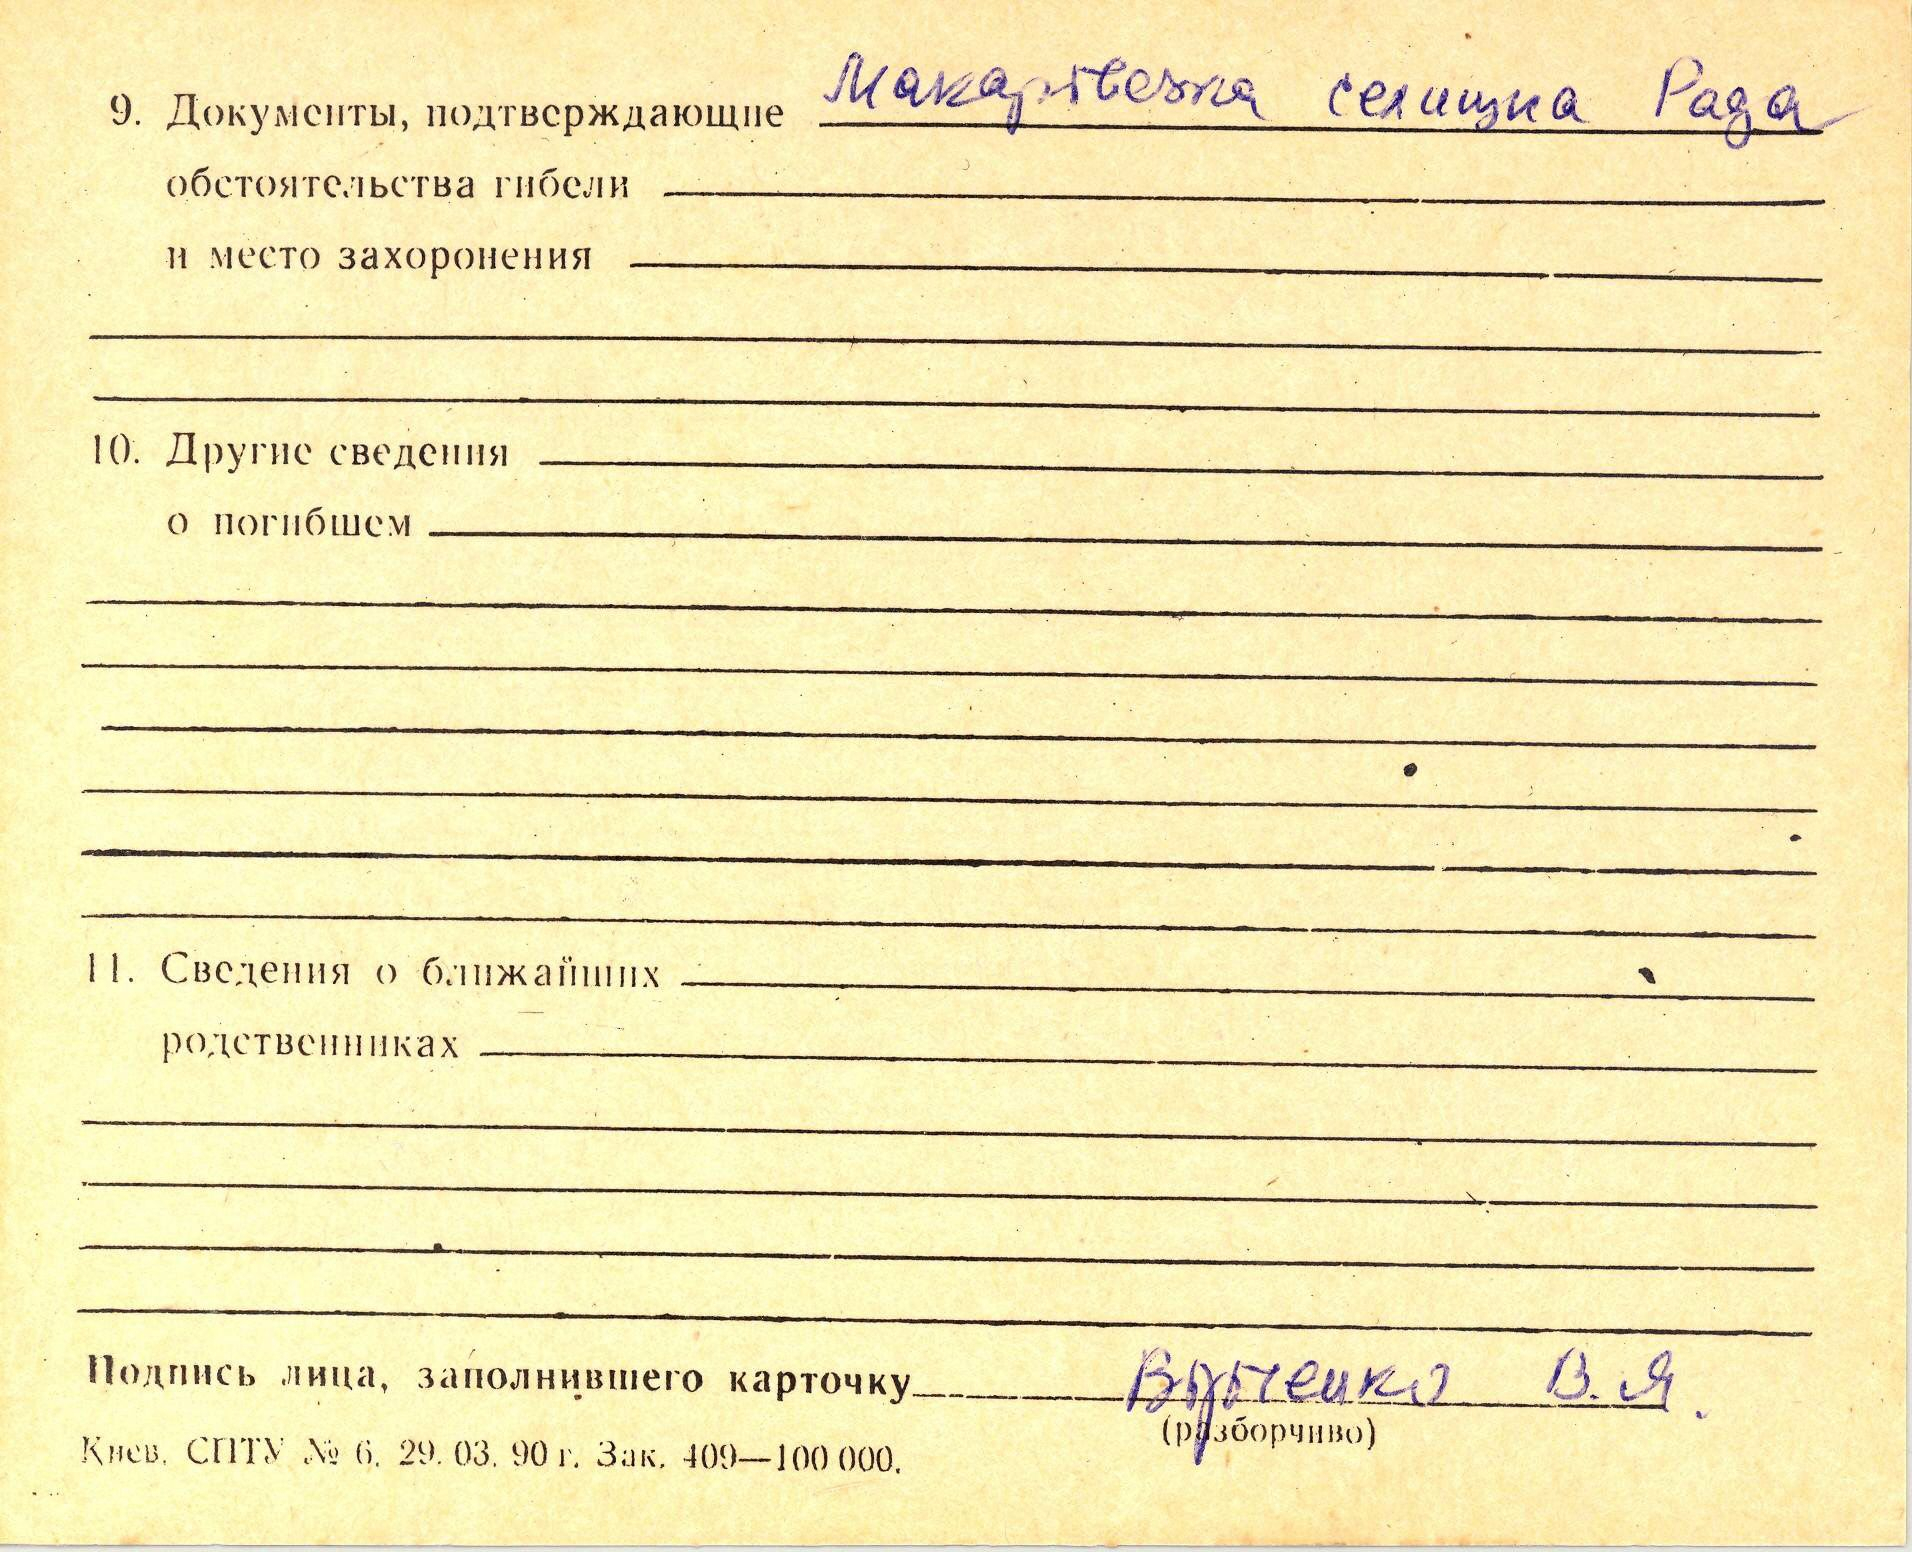 9. Документы, подтверждающие Макарівська селищна Рада
обстоятельства гибели
и место захоронения
10. Другие сведения
о погибшем
11. Сведения о ближайших
родственниках
Подпись лица, заполнившего карточку В. Я.
(разборчиво)
Киев. СПТУ № 6. 29. 03. 90 г. Зак. 409—100 000.